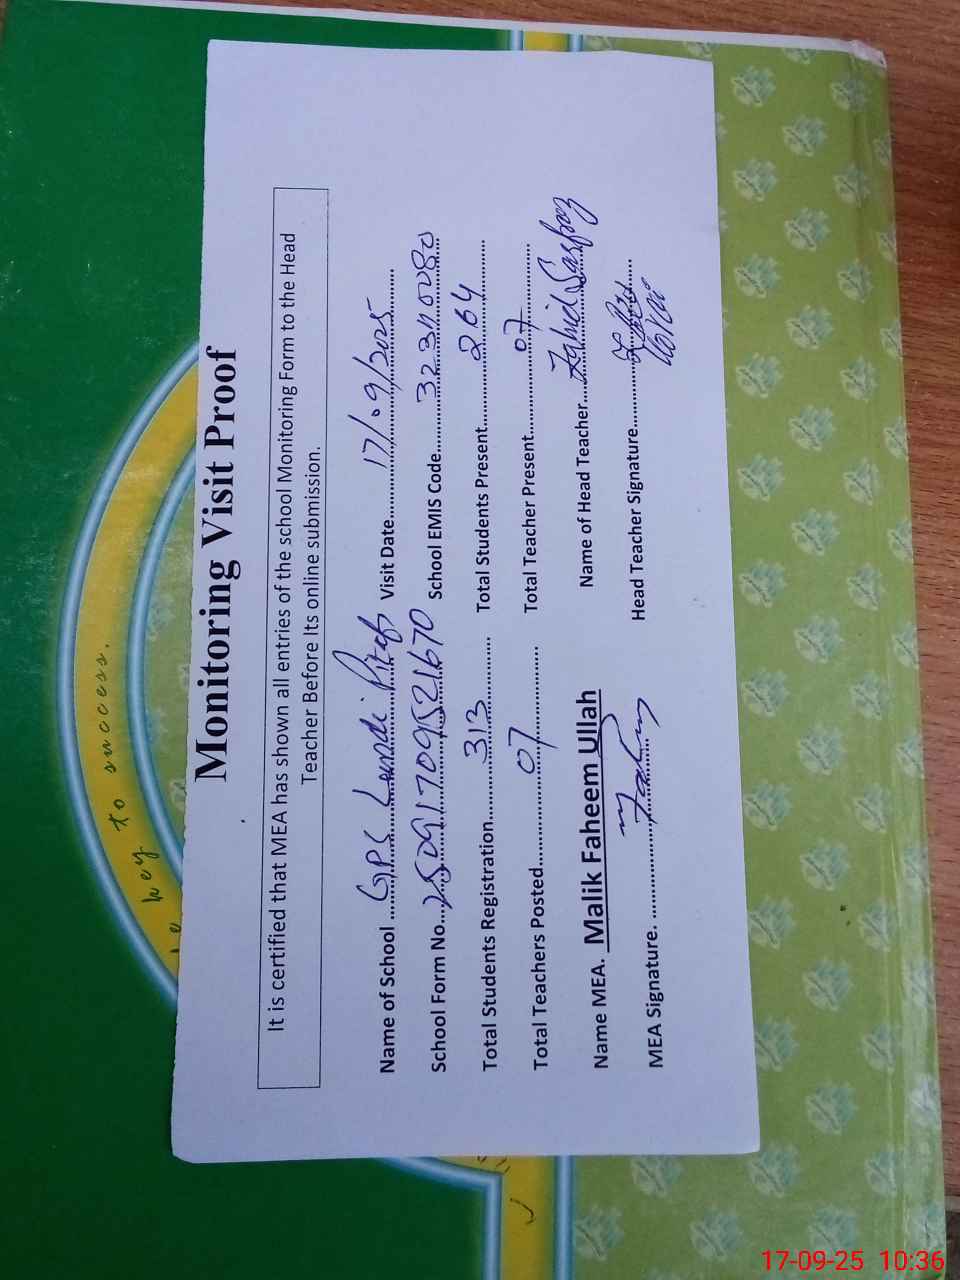 Monitoring Visit Proof
It is certified that MEA has shown all entries of the school Monitoring Form to the Head
Teacher Before Its online submission.
Name of School ....GPS Lundi Pitafi Visit Date.......17/09/2025
School Form No....25091709521670 School EMIS Code.......
Total Students Registration.......313....... Total Students Present.......264
Total Teachers Posted.......07....... Total Teacher Present.......07
Name MEA. Malik Faheem Ullah Name of Head Teacher....Zahid Sarfraz
MEA Signature. ....... Head Teacher Signature.......
key to success.
17-09-25 10:36